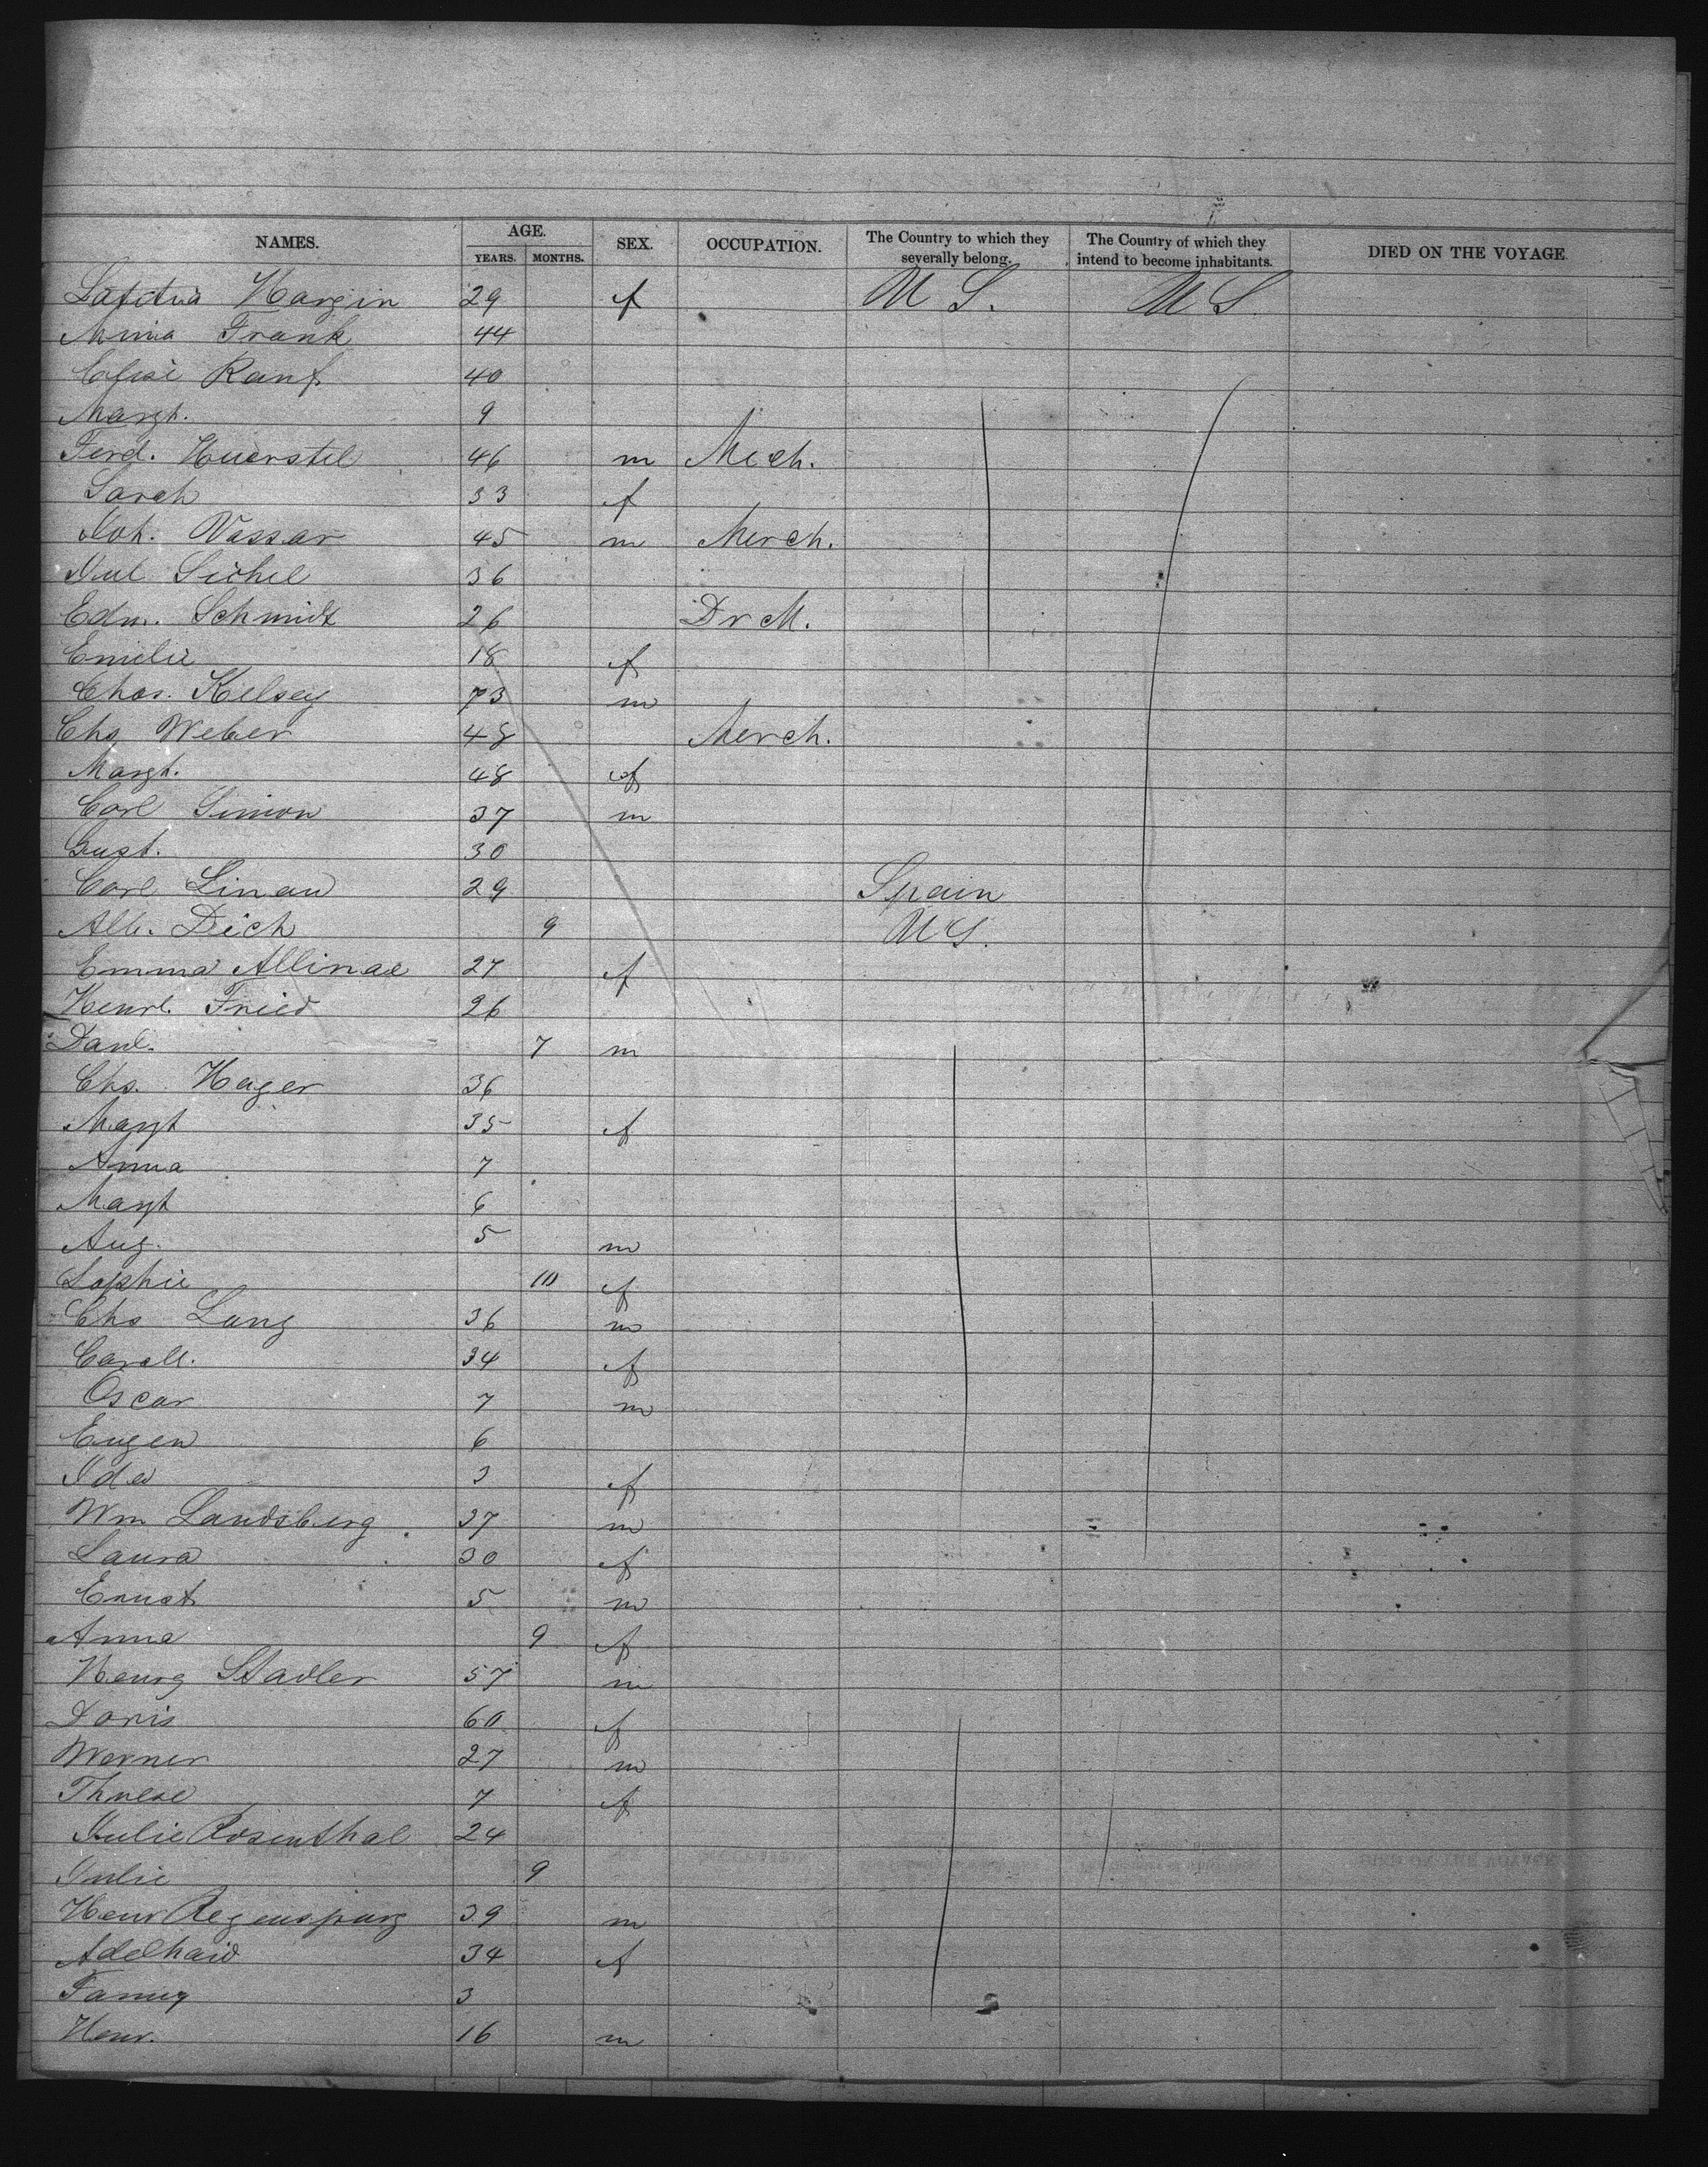 NAMES. AGE. YEARS. MONTHS. SEX. OCCUPATION. The Country to which they severally belong. The Country of which they intend to become inhabitants. DIED ON THE VOYAGE
Latitia Hargin 29 f U S. U S.
Minia Frank 44
Elise Ranf 40
Margh. 9
Ferd. Huerstel 46 m Mech.
Sarah 33 f
Joh. Vassar 45 m Merch.
Jul Sichel 36
Edm. Schmidt 26 Dr M.
Emilie 18 f
Chas. Kelsey 73 m
Chs Weber 48 Merch.
Margh. 48 f
Carl Simon 37 m
Gust. 30
Carl Linau 29 Spain
Alb. Dich 9 U S.
Emma Allinae 27 f
Henrt. Fried 26
Danl. 7 m
Chs. Hager 36
Margt 35 f
Anna 7
Margt 6
Aug. 5 m
Sophie 10 f
Chs Lang 36 m
Caroll. 34 f
Oscar 7 m
Eugen 6
Ida 3 f
Wm Landsberg 37 m
Laura 30 f
Ernst 5 m
Anna 9 f
Henry Stadler 57 m
Doris 60 f
Werner 27 m
Therese 7 f
Julie Rosenthal 24
Julie 9
Henr Regenspurg 39 m
Adelhaid 34 f
Fanny 3
Henr. 16 m